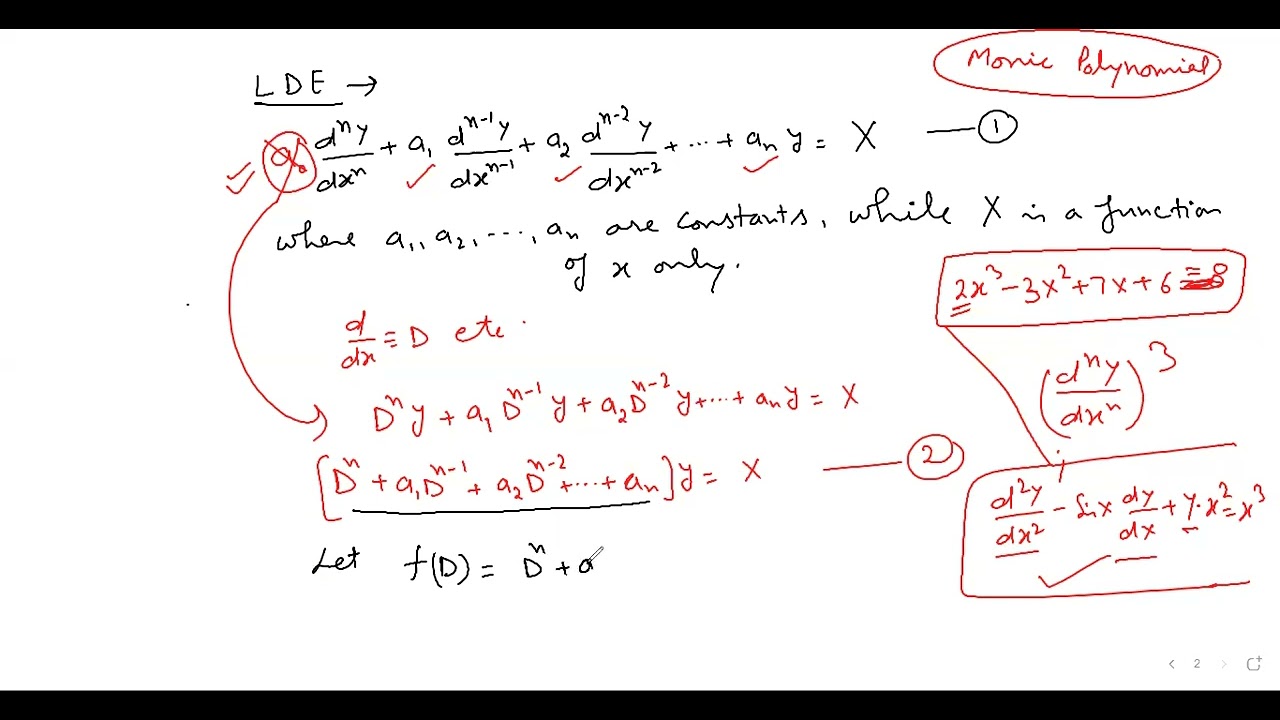 Monic Polynomial
LDE →
a₀ dⁿy/dxⁿ + a₁ dⁿ⁻¹y/dxⁿ⁻¹ + a₂ dⁿ⁻²y/dxⁿ⁻² + ... + aₙ y = X — ①
where a₁, a₂, ..., aₙ are constants, while X is a function
of x only.
2x³ - 3x² + 7x + 6
d/dx ≡ D etc.
(dⁿy/dxⁿ)³
Dⁿy + a₁Dⁿ⁻¹y + a₂Dⁿ⁻²y + ... + aₙy = X
[Dⁿ + a₁Dⁿ⁻¹ + a₂Dⁿ⁻² + ... + aₙ]y = X — ②
d²y/dx² - sin x dy/dx + y·x² = x³
Let f(D) = Dⁿ + a
2